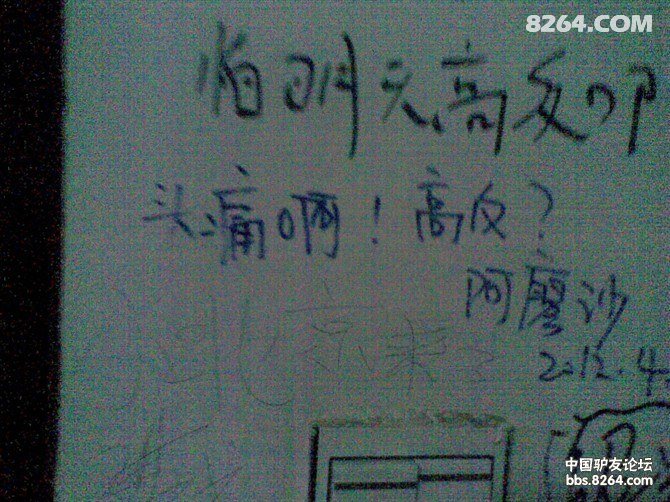 8264.COM
怕明天高反
头痛啊！高反？
阿廖沙
2012.4
北京来
中国驴友论坛
bbs.8264.com